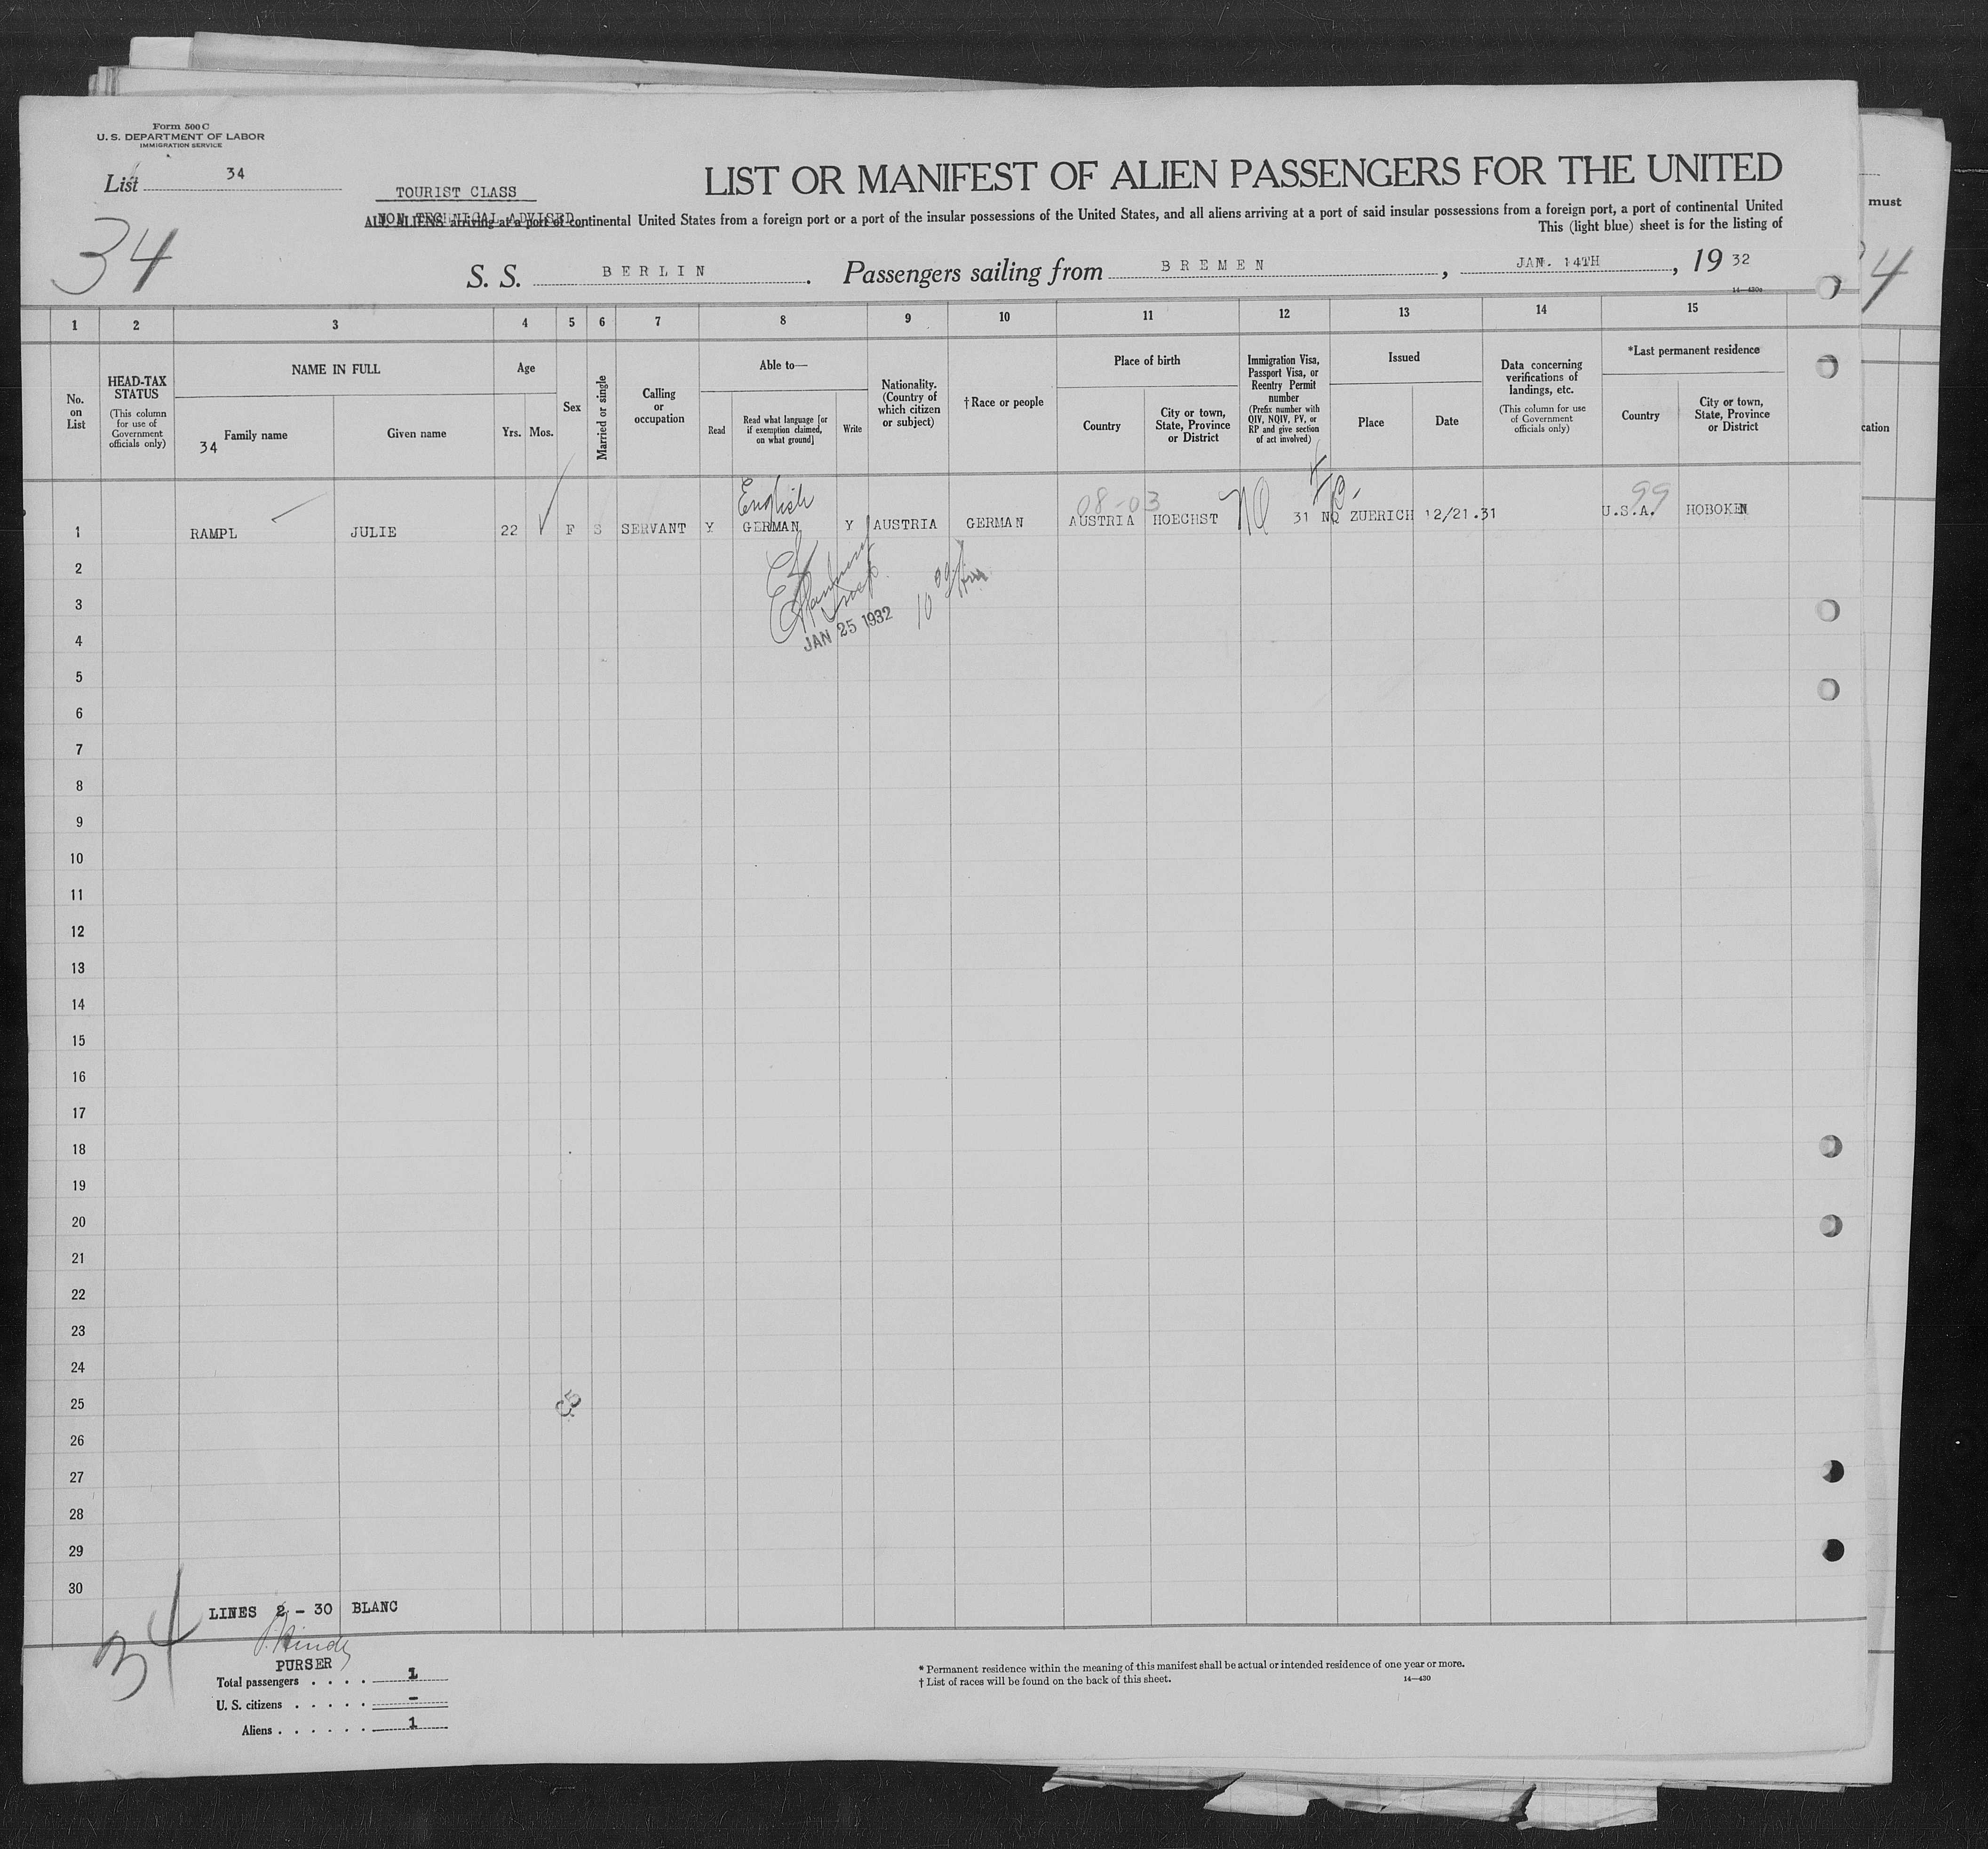 Form 500 C
U. S. DEPARTMENT OF LABOR
IMMIGRATION SERVICE
List 34
34
TOURIST CLASS
LIST OR MANIFEST OF ALIEN PASSENGERS FOR THE UNITED
ALL ALIENS arriving at a port of continental United States from a foreign port or a port of the insular possessions of the United States, and all aliens arriving at a port of said insular possessions from a foreign port, a port of continental United
This (light blue) sheet is for the listing of
S. S. BERLIN. Passengers sailing from BREMEN, JAN. 14TH, 19 32
14—430a
must
4
1 2 3 4 5 6 7 8 9 10 11 12 13 14 15
No. on List
HEAD-TAX STATUS
(This column for use of Government officials only)
NAME IN FULL
34 Family name
Given name
Age
Yrs. Mos.
Sex
Married or single
Calling or occupation
Able to—
Read
Read what language [or if exemption claimed, on what ground]
Write
Nationality. (Country of which citizen or subject)
† Race or people
Place of birth
Country
City or town, State, Province or District
Immigration Visa, Passport Visa, or Reentry Permit number
(Prefix number with QIV, NQIV, PV, or RP and give section of act involved)
Issued
Place
Date
Data concerning verifications of landings, etc.
(This column for use of Government officials only)
*Last permanent residence
Country
City or town, State, Province or District
cation
English
08-03
NQ
99
1 RAMPL JULIE 22 F S SERVANT Y GERMAN Y AUSTRIA GERMAN AUSTRIA HOECHST 31 NQ ZUERICH 12/21.31 U.S.A. HOBOKEN
2
3
4
JAN 25 1932
5
6
7
8
9
10
11
12
13
14
15
16
17
18
19
20
21
22
23
24
25
26
27
28
29
30
LINES 2 - 30 BLANC
34
PURSER
Total passengers . . . . 1
U. S. citizens . . . . . -
Aliens . . . . . . 1
* Permanent residence within the meaning of this manifest shall be actual or intended residence of one year or more.
† List of races will be found on the back of this sheet.
14—430